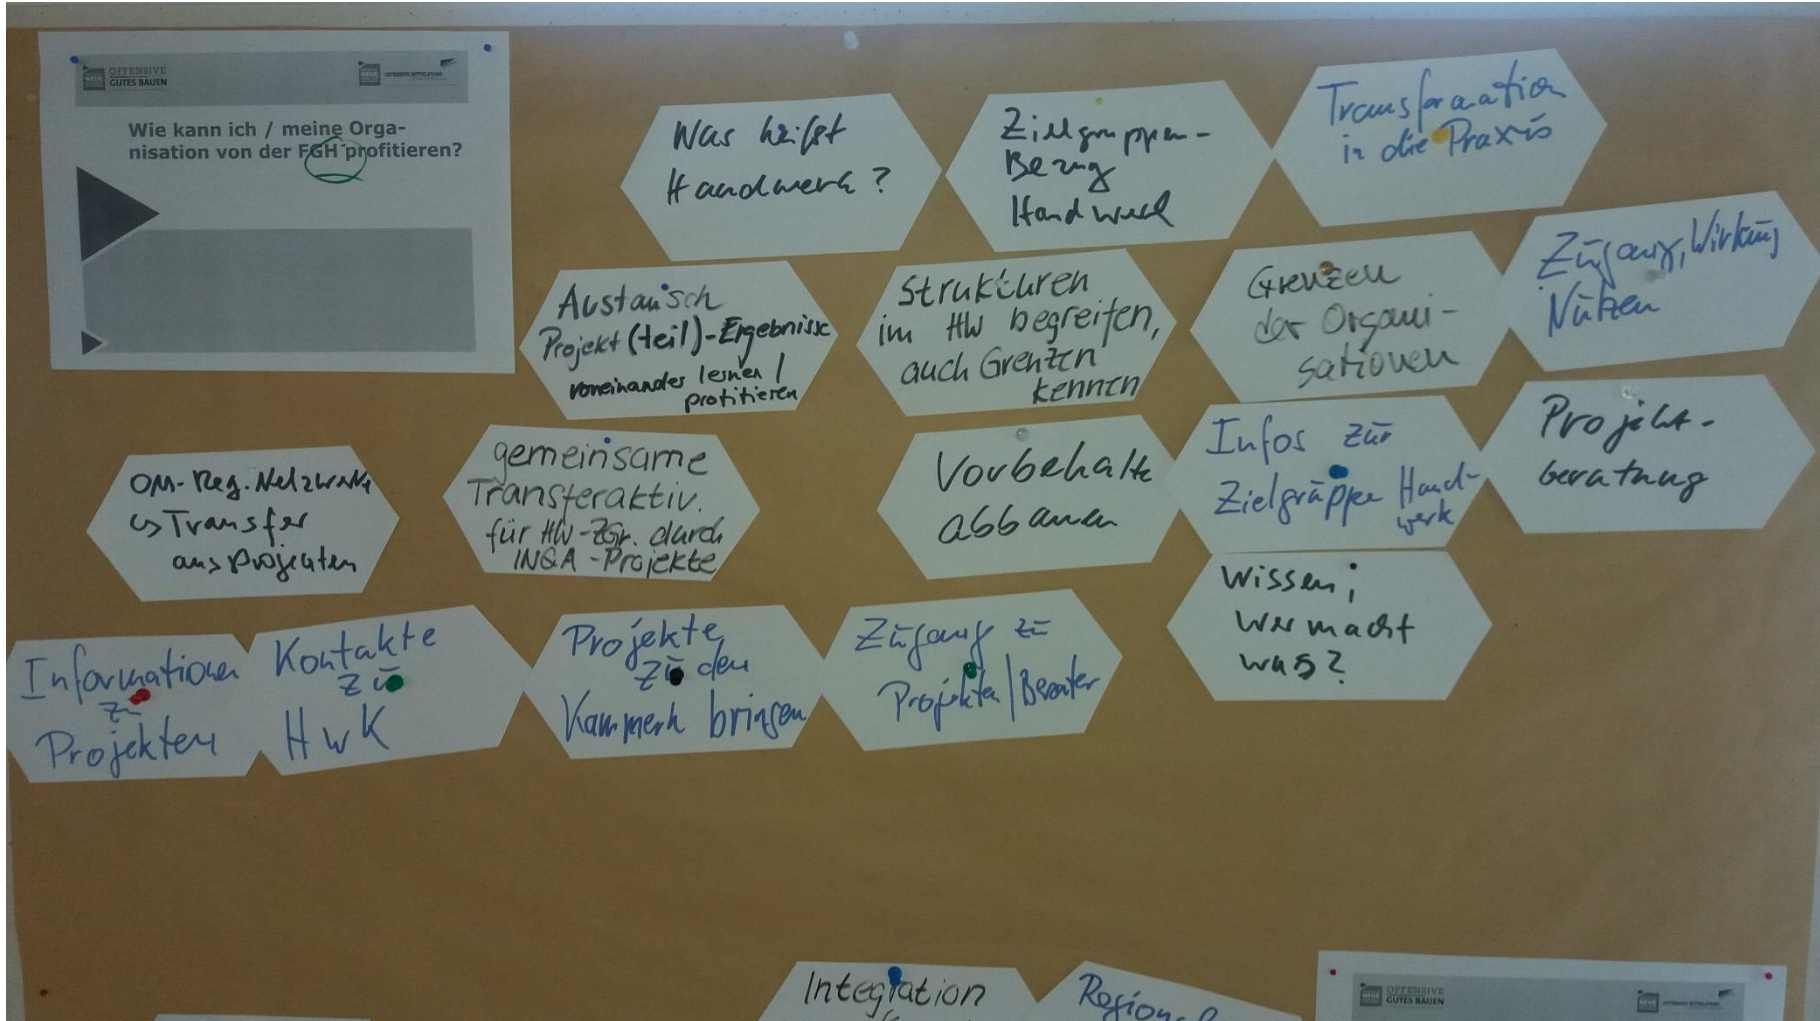 OFFENSIVE
GUTES BAUEN
OFFENSIVE MITTELSTAND
Wie kann ich / meine Orga-
nisation von der FGH profitieren?
Was heißt
Handwerk?
Zielgruppen-
Bezug
Handwerk
Transformation
in die Praxis
Austausch
Projekt(teil)-Ergebnisse
voneinander lernen /
profitieren
Strukturen
im HW begreifen,
auch Grenzen
kennen
Grenzen
der Organi-
sationen
Zugang, Wirkung
Nutzen
OM-Reg. Netzwerke
↳ Transfer
aus Projekten
gemeinsame
Transferaktiv.
für HW-ZGr. durch
INQA-Projekte
Vorbehalte
abbauen
Infos zur
Zielgruppe Hand-
werk
Projekt-
beratung
Wissen;
wer macht
was?
Informationen
zu
Projekten
Kontakte
zu
HwK
Projekte
zu den
Kammern bringen
Zugang zu
Projekten/Berater
Integration
Regional
OFFENSIVE
GUTES BAUEN
OFFENSIVE MITTELSTAND